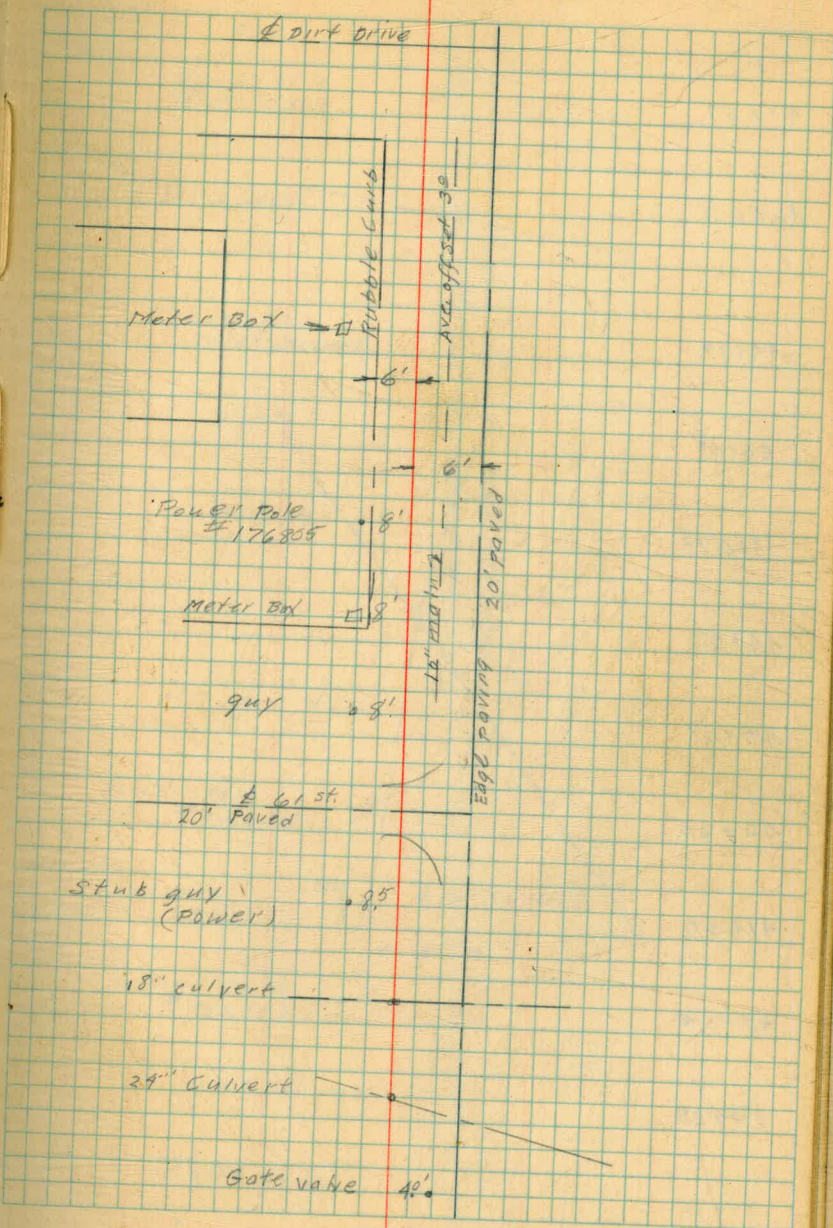 ℄ Dirt Drive
Rubble Curb
Ave. offset 3⁹
Meter Box
6'
6'
Power Pole
# 176805
8'
20' paved
10" main
Meter Box
8'
guy
8'
Edge paving
℄ 61 st.
20' Paved
Stub guy
(Power)
8.5
18" culvert
24" Culvert
Gate valve
4.0'